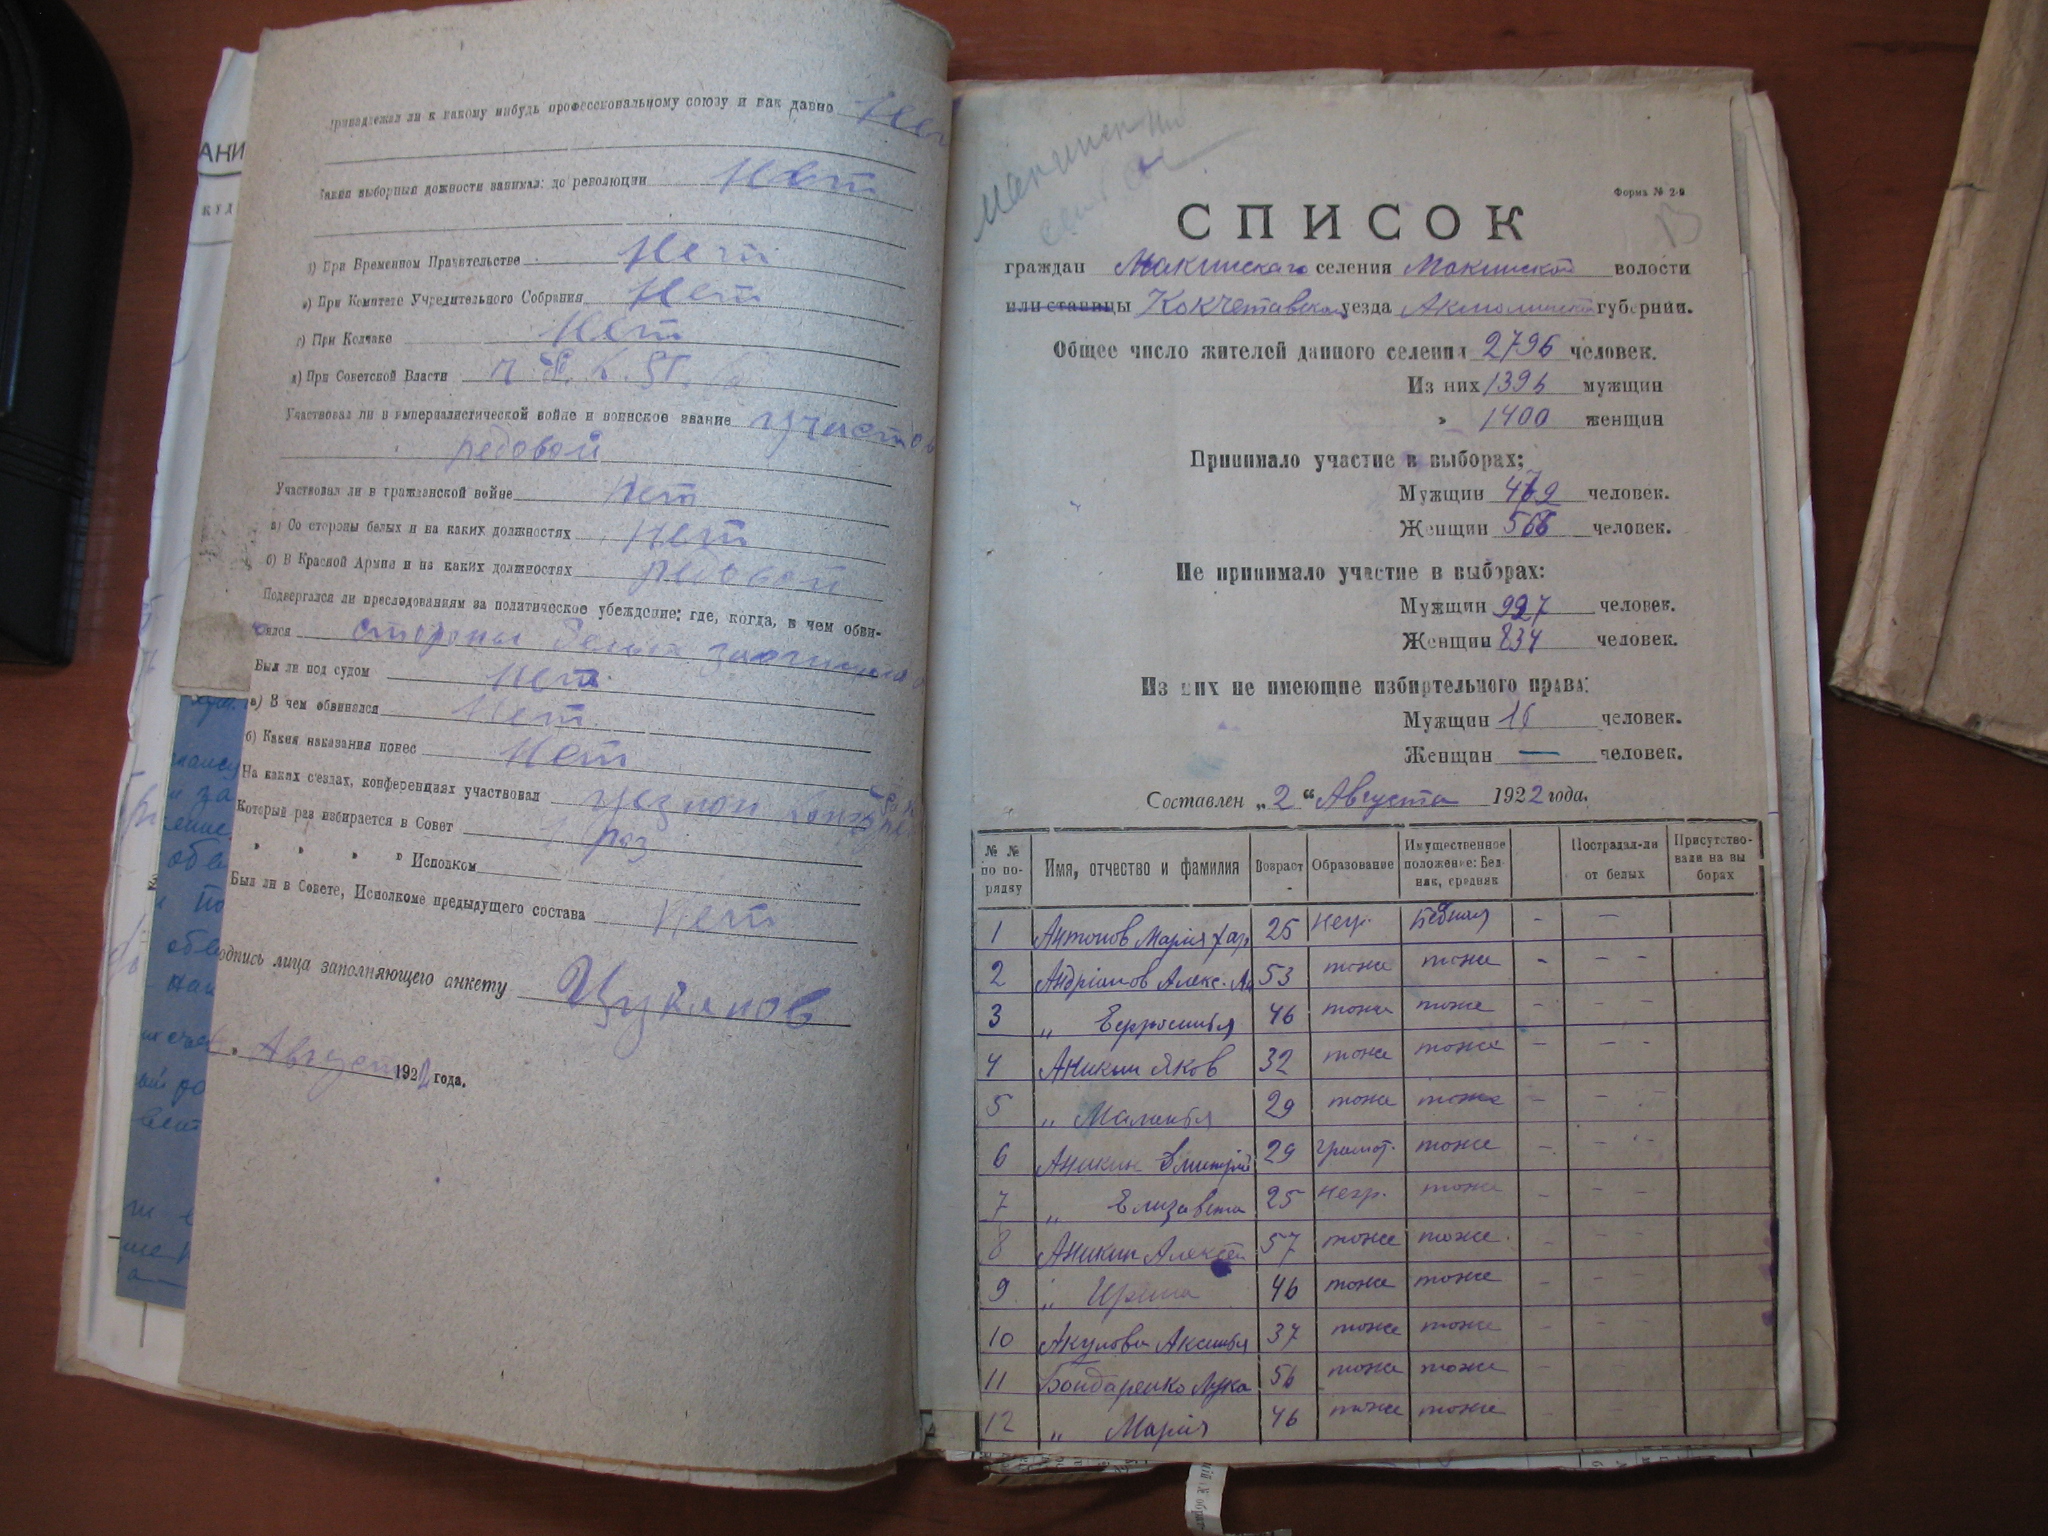 АНИ
принадлежал ли к какому нибудь профессиональному союзу и как давно Нет
Какия выборныя должности занимал: до революции Нет
б) При Временном Правительстве Нет
в) При Комитете Учредительного Собрания Нет
г) При Колчаке Нет
д) При Советской Власти
Участвовал ли в империалистической войне и воинское звание участво
редовой
Участвовал ли в гражданской войне нет
а) Со стороны белых и на каких должностях нет
б) В Красной Армии и на каких должностях редовой
Подвергался ли преследованиям за политическое убеждение; где, когда, в чем обви-
нялся стороны белых
Был ли под судом нет
а) В чем обвинялся нет
б) Какия наказания понес нет
На каких с'ездах, конференциях участвовал
Который раз избирается в Совет 1 раз
" " " " Исполком
Был ли в Совете, Исполкоме предыдущего состава нет
одпись лица заполняющего анкету Цуканов
" Август 1922 года.
Форма № 2-9
СПИСОК
граждан Макинскаго селения Макинской волости
или станицы Кокчетавскаго уезда Акмолинской губернии.
Общее число жителей данного селения 2796 человек.
Из них 1396 мужчин
" 1400 женщин
Принимало участие в выборах:
Мужчин 469 человек.
Женщин 566 человек.
Не принимало участие в выборах:
Мужчин 927 человек.
Женщин 834 человек.
Из них не имеющие избиртельного права:
Мужчин 16 человек.
Женщин — человек.
Составлен „2“ Августа 1922 года.
№ № по по-рядку Имя, отчество и фамилия Возраст Образование Имущественное положение: Бед-няк, средняк Пострадал-ли от белых Присутство-вали на вы борах
1 Антонов Марія Хар 25 негр. бедная - —
2 Андріанов Алекс. 53 тоже тоже - - -
3 „ Ефросинья 46 тоже тоже - - -
4 Аникин Яков 32 тоже тоже - - -
5 „ Маланья 29 тоже тоже - - -
6 Аникин Дмитрій 29 грамот. тоже - - -
7 „ Елизавета 25 негр. тоже - - -
8 Аникин Алексей 57 тоже тоже - - -
9 „ Ирина 46 тоже тоже - - -
10 Акулова Аксинья 37 тоже тоже - - -
11 Бондаренко Лука 56 тоже тоже - - -
12 „ Марія 46 тоже тоже - - -